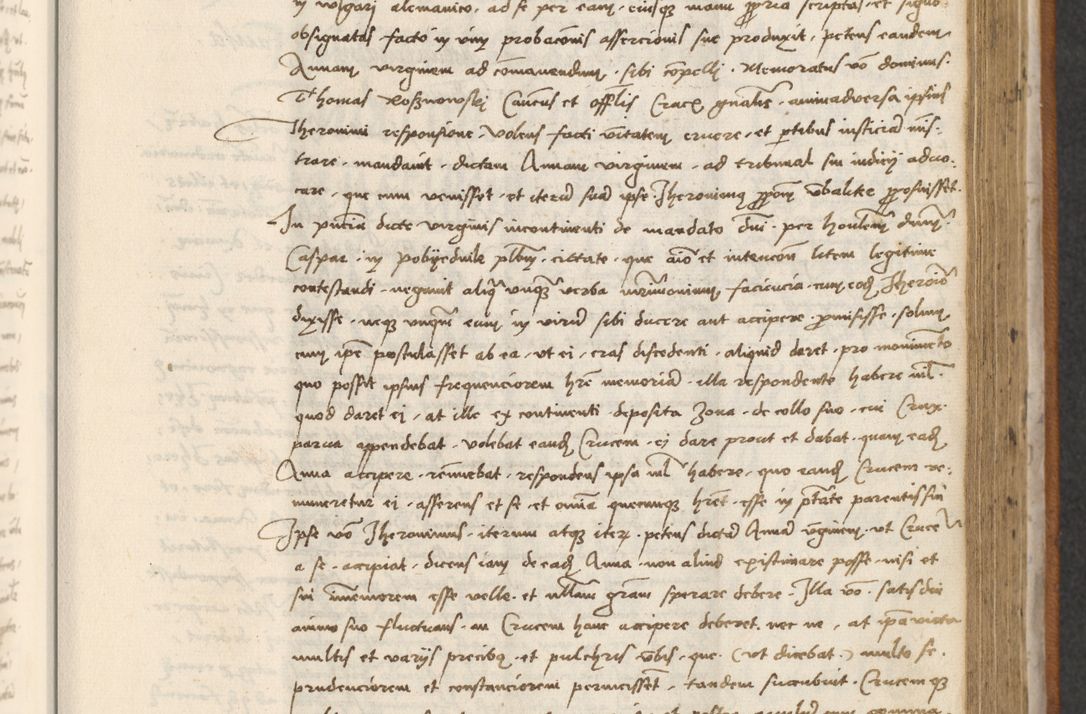 in vulgari alemanico, ad se per eam, eiusqz manu ppria scriptas et signo
obsignatas facto in vim probaconis assercionis sue produxit, petens eandem
Annam virginem ad comanendum sibi copelli. Memoratus vo dominus
Thomas Rosznowski Cancus et offlis Crac gnalis, animadversa ipsius
Iheronimi responsione, Volens facti vitatem eruere, et ptibus insticia mis-
trare, mandavit, dictam Annam virginem ad tribunal sui iudicij advo-
care, que cum venisset, et iteru sua ipse Iheronimus ppom vbaliter pposuisset.
In pncia dicte virginis incontinenti de mandato dni per honlem dnm
Caspar in Pobyednik plbm, citate, que aio et intencon litem legitime
contestandi, negavit aliq unqz verba mrimonium faciencia, cum eod Iheroio
dixisse, neqz unqz eum in viru sibi ducere aut accipere pmisisse, solum
cum ipe postulasset ab ea, ut ei, cras discedenti, aliquid daret, pro monimeto
quo posset ipsius frequenciorem hre memoria, illa respondente habere nil
quod daret ei, at ille ex continenti deposita Zona, de collo suo, cui Crux
parva appendebat, volebat eand Crucem, ei dare prout et dabat, quam ead
Anna accipere, rennuebat, respondens ipsa nil habere, quo eand Crucem re-
muneretur ei, asserens et se et omia quecumqz hret, esse in ptate parentis sui
Ipse vo Iheronimus, iterum atqz iter, petens dicta Anna vginem, ut Cruce
a se, accipiat, dicens iam de ead Anna, non aliud existimare posse, nisi et
sui imemorem esse velle, et nllam gram sperare debere. Illa vo, satis diu
animo suo fluctuans, an Crucem hanc accipere deberet, nec ne, at ipa victa
multis et varijs precibus, et pulchris vbis, que, (ut dicebat) multo se
prudenciorem et constanciorem permovisset, tandem sucubuit, Crucemqz